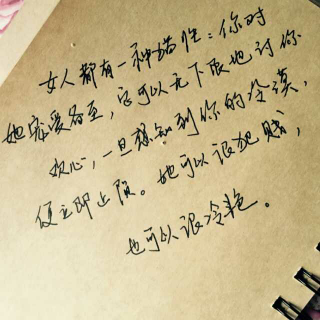 女人都有一种猫性：你对
她宠爱备至，它可以无下限地讨你
欢心，一旦感知到你的冷漠，
便立即止损。她可以很犯贱，
也可以很冷艳。